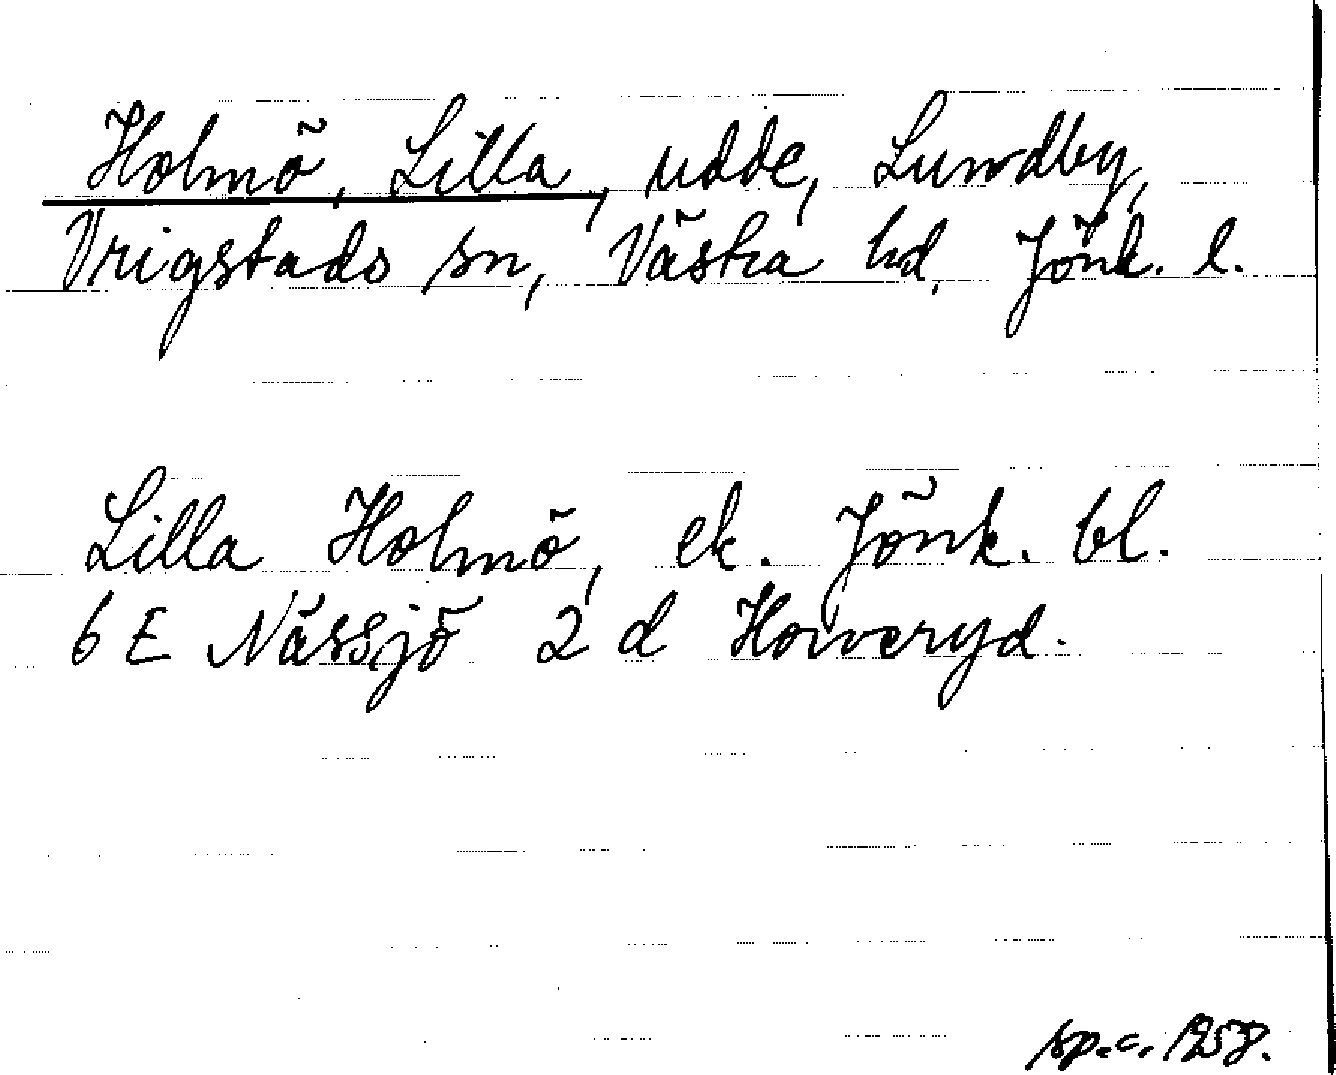 Holmö, Lilla, udde, Lundby,
Vrigstads sn, Västra hd, Jönk. l.
Lilla Holmö, ek. Jönk. bl.
6 E Nässjö 2 d Horveryd.
sp.c. 1958.